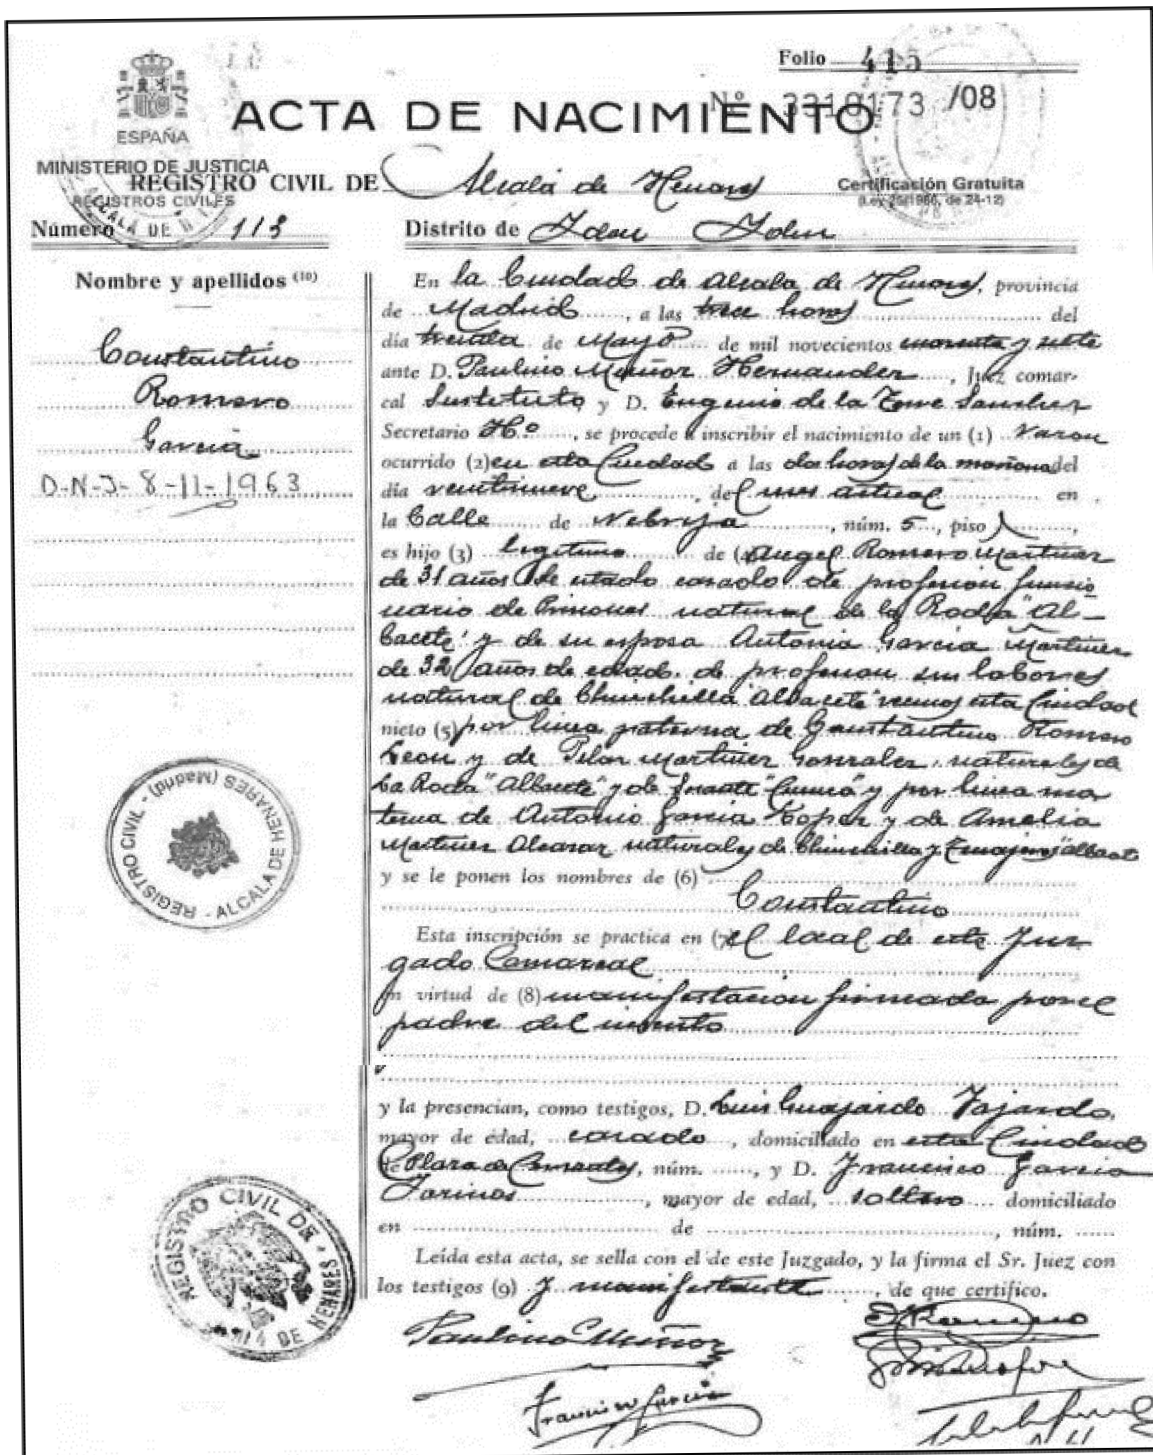 Folio 415
Nº 3319173 /08
ESPAÑA
ACTA DE NACIMIENTO
MINISTERIO DE JUSTICIA
REGISTROS CIVILES
REGISTRO CIVIL DE Alcalá de Henares
Certificación Gratuita
(Ley 25/1986, de 24-12)
Número 113
Distrito de Idem Idem
Nombre y apellidos (10)
Constantino
Romero
García
D-N-J- 8-11-1963
En la Ciudad de Alcala de Henares, provincia
de Madrid, a las trece horas del
día treinta de Mayo de mil novecientos cuarenta y siete
ante D. Paulino Muñoz Hernandez, Juez comar-
cal Sustituto y D. Eugenio de la Torre Sanchez
Secretario Hº, se procede a inscribir el nacimiento de un (1) Varon
ocurrido (2) en esta Ciudad a las dos horas de la mañana del
día veintinueve, del mes actual en
la Calle de Nebrija, núm. 5, piso
es hijo (3) legitimo de (4) Angel Romero Martinez
de 31 años de estado casado de profesion funcio
nario de Prisiones natural de la Roda "Al-
bacete" y de su esposa Antonia Garcia Martinez
de 32 años de edad de profesion sus labores
natural de Chinchilla "Albacete" vecinos esta Ciudad
nieto (5) por linea paterna de Constantino Romero
Leon y de Pilar Martinez Gonzalez, naturales de
La Roda "Albacete" y de "Cuenca" y por linea ma
terna de Antonio Garcia Lopez y de Amelia
Martinez Alcazar naturales de Chinchilla y "Albacete"
y se le ponen los nombres de (6)
Constantino
Esta inscripción se practica en (7) el local de este Juz
gado Comarcal
en virtud de (8) manifestacion firmada por el
padre del inscrito
y la presencian, como testigos, D. Luis Guajardo Fajardo,
mayor de edad, casado, domiciliado en esta Ciudad
de Plaza de Cervantes, núm. , y D. Francisco Garcia
Farinos, mayor de edad, soltero domiciliado
en de , núm.
Leída esta acta, se sella con el de este Juzgado, y la firma el Sr. Juez con
los testigos (9) y manifestante, de que certifico.
Paulino Muñoz
Francisco Garcia
REGISTRO CIVIL - ALCALA DE HENARES (Madrid)
REGISTRO CIVIL DE ALCALA DE HENARES